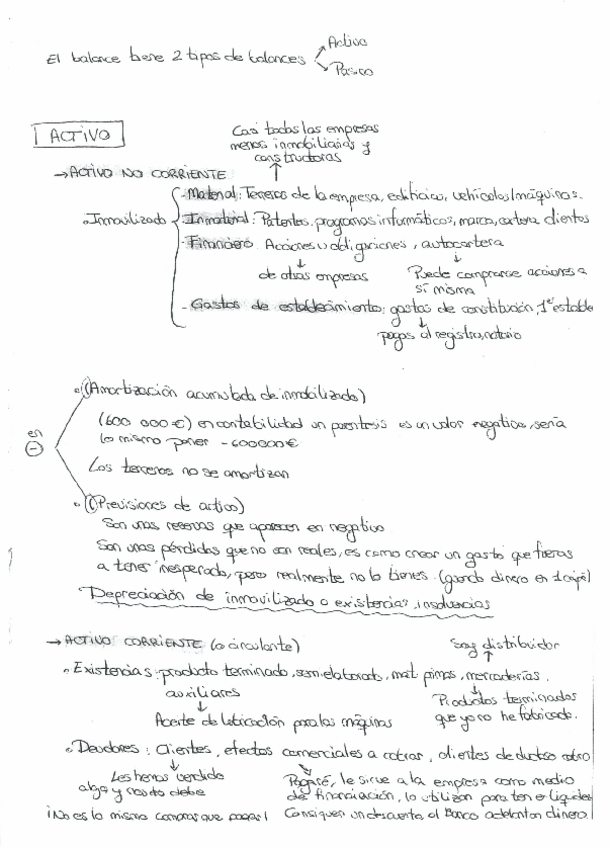 El balance tiene 2 tipos de balances
Activo
Pasivo
ACTIVO
Casi todas las empresas
menos inmobiliarias y
constructoras
→ ACTIVO NO CORRIENTE
- Material: Terrenos de la empresa, edificios, vehículos/máquinas.
• Inmovilizado
- Inmaterial: Patentes, programas informáticos, marca, cartera clientes
- Financiero: Acciones u obligaciones, autocartera
de otras empresas
Puede comprarse acciones a
sí misma
- Gastos de establecimiento: gastos de constitución, 1er estable
pagos al registro, notario
• (Amortización acumulada de inmobilizado)
(600 000 €) en contabilidad un parentesis es un valor negativo, sería
lo mismo poner - 600000 €
en
-
Los terrenos no se amortizan
• (Previsiones de activo)
Son unas reservas que aparecen en negativo
Son unas pérdidas que no son reales, es como crear un gasto que fueras
a tener inesperado, pero realmente no lo tienes. (guardo dinero en 1 caja)
Depreciación de inmovilizado o existencias, insolvencias
→ ACTIVO CORRIENTE (o circulante)
Soy distribuidor
• Existencias: producto terminado, semielaborado, mat primas, mercaderías.
auxiliares
Aceite de lubricación para las máquinas
Productos terminados
que yo no he fabricado.
• Deudores: Clientes, efectos comerciales a cobrar, clientes de dudoso cobro
Les hemos vendido
algo y nos lo debe
Pagaré, le sirve a la empresa como medio
de financiación, lo utilizan para tener liquidez
¡No es lo mismo comprar que pagar!
Consiguen un descuento, el Banco adelantan dinero.